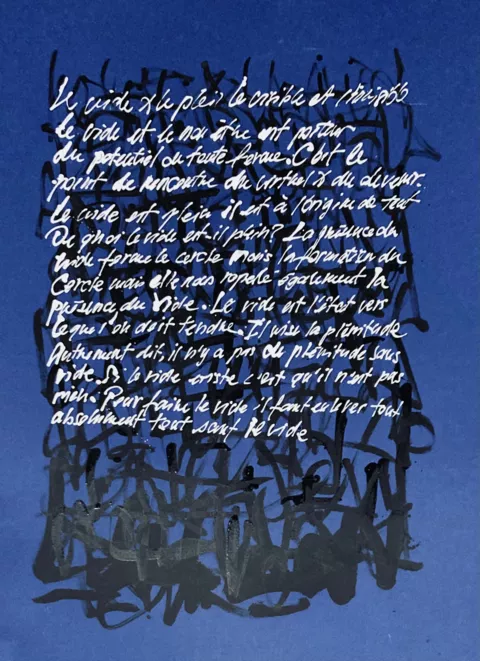 Le vide & le plein le visible et l'invisible
le vide et le non être est porteur
du potentiel de toute forme. C'est le
point de rencontre du virtuel & du devenir.
Le vide est plein il est à l'origine de tout
De quoi le vide est-il plein? La présence du
vide forme le cercle mais la formation du
Cercle mais elle nous rappelle également la
présence du vide. Le vide est l'état vers
lequel on doit tendre. Il vise la plénitude
Autrement dit, il n'y a pas de plénitude sans
vide. Si le vide existe c'est qu'il n'est pas
rien. Pour faire le vide il faut enlever tout
absolument tout sauf le vide